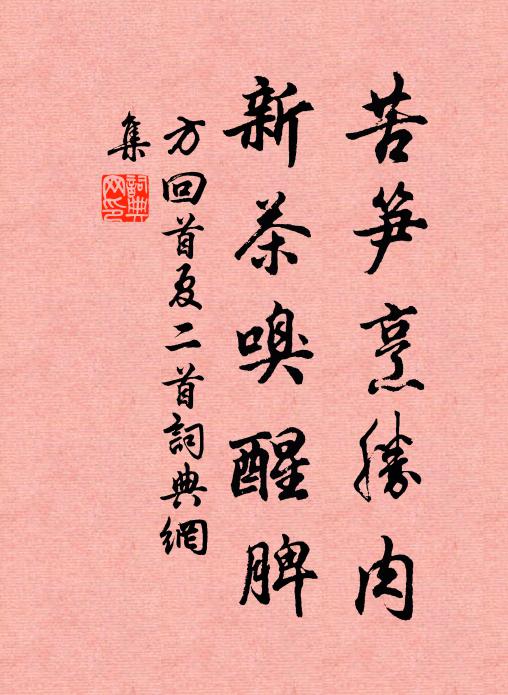 苦笋烹勝肉
新茶嗅醒脾
方回首夏二首詞典網
集
詞典
网印